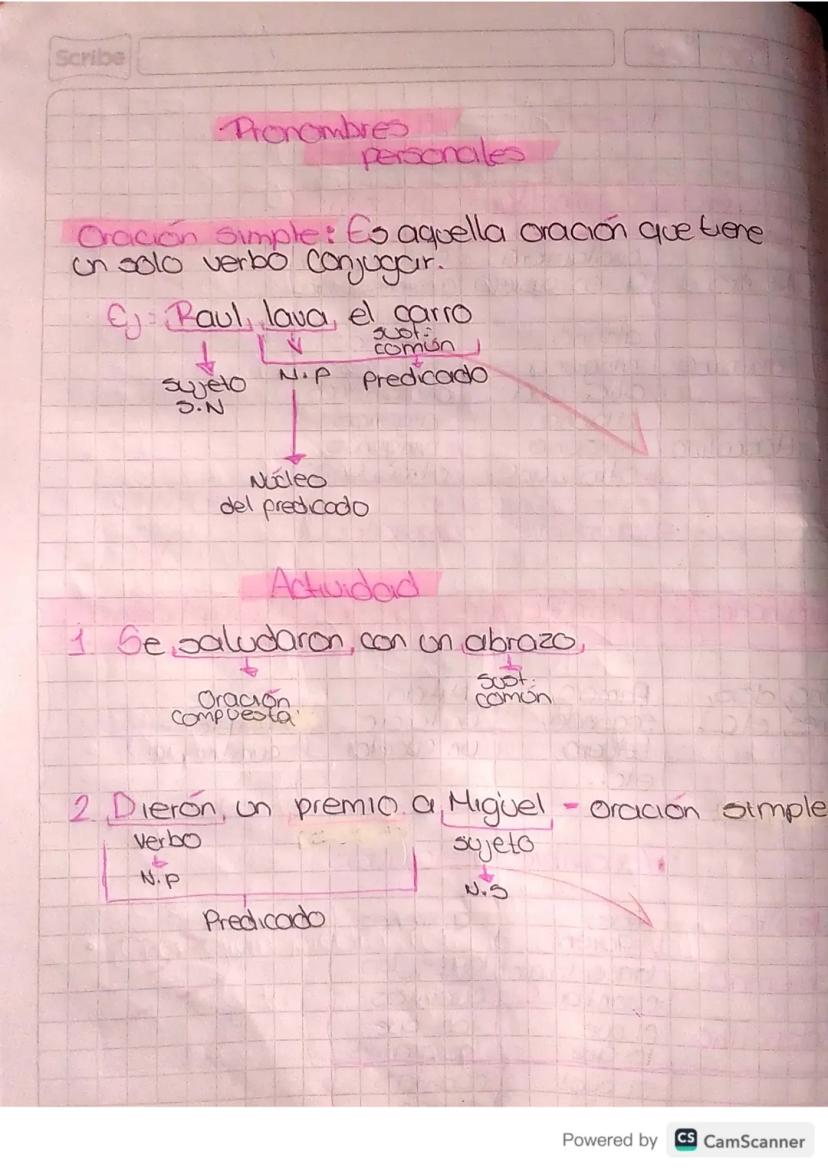 Scribe
Pronombres
personales
Oración simple: Es aquella oración que tiene
un solo verbo conjugar.
Ej: Raul lava el carro
sust:
común
sujeto N.P predicado
S.N
Núcleo
del predicado
Actividad
1 Se saludaron con un abrazo
Oración sust:
compuesta común
2 Dierón un premio a Miguel - oración simple
verbo sujeto
N.P N.S
Predicado
Powered by CS CamScanner